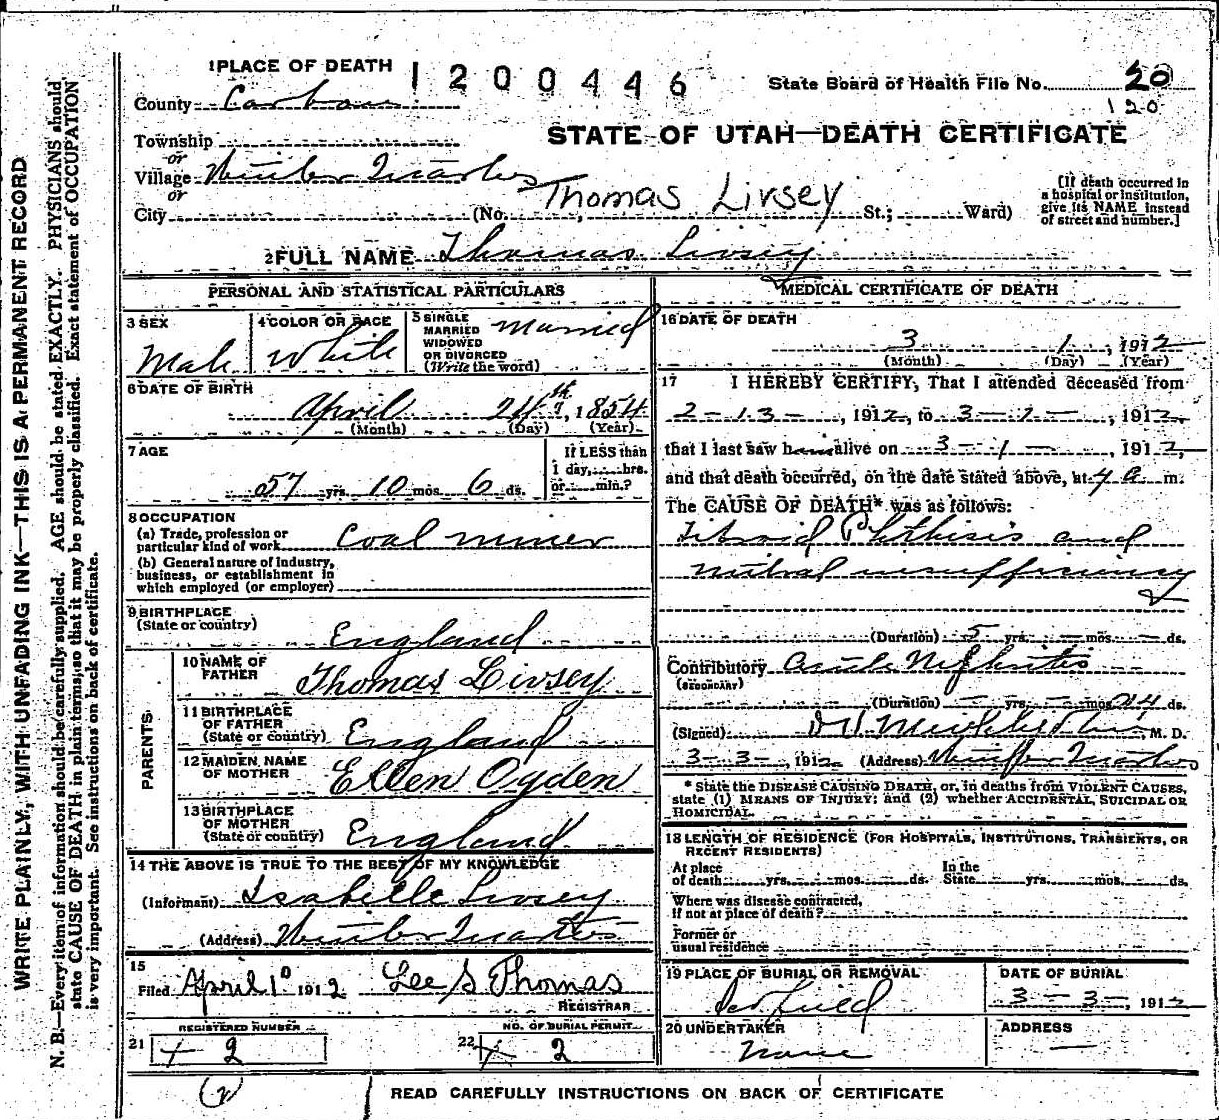 WRITE PLAINLY, WITH UNFADING INK—THIS IS A PERMANENT RECORD
N. B.—Every item of information should be carefully supplied. AGE should be stated EXACTLY. PHYSICIANS should
state CAUSE OF DEATH in plain terms, so that it may be properly classified. Exact statement of OCCUPATION
is very important. See instructions on back of certificate.
1 PLACE OF DEATH
1200446
State Board of Health File No. 20
120
County Carbon
STATE OF UTAH—DEATH CERTIFICATE
Township
or
Village Winter Quarters
or
City (No. Thomas Livsey St.; Ward)
[If death occurred in
a hospital or institution,
give its NAME instead
of street and number.]
2 FULL NAME Thomas Livsey
PERSONAL AND STATISTICAL PARTICULARS
3 SEX
Male
4 COLOR OR RACE
White
5 SINGLE
MARRIED
WIDOWED
OR DIVORCED
(Write the word)
Married
6 DATE OF BIRTH
April 24th, 1854
(Month) (Day) (Year)
7 AGE
57 yrs. 10 mos. 6 ds.
If LESS than
1 day, hrs.
or min.?
8 OCCUPATION
(a) Trade, profession or
particular kind of work Coal miner
(b) General nature of industry,
business, or establishment in
which employed (or employer)
9 BIRTHPLACE
(State or country)
England
PARENTS
10 NAME OF
FATHER
Thomas Livsey
11 BIRTHPLACE
OF FATHER
(State or country)
England
12 MAIDEN NAME
OF MOTHER
Ellen Ogden
13 BIRTHPLACE
OF MOTHER
(State or country)
England
14 THE ABOVE IS TRUE TO THE BEST OF MY KNOWLEDGE
(Informant) Isabelle Livsey
(Address) Winter Quarters
15
Filed April 10 1912 Lee S Thomas
REGISTRAR
REGISTERED NUMBER
21 2
NO. OF BURIAL PERMIT
22 2
MEDICAL CERTIFICATE OF DEATH
16 DATE OF DEATH
3 1, 1912
(Month) (Day) (Year)
17 I HEREBY CERTIFY, That I attended deceased from
2-13-, 1912, to 3-1-, 1912,
that I last saw him alive on 3-1, 1912,
and that death occurred, on the date stated above, at 4 a m.
The CAUSE OF DEATH* was as follows:
Fibroid Phthisis and
mitral insufficiency
(Duration) 5 yrs. — mos. — ds.
Contributory acute Nephritis
(SECONDARY)
(Duration) — yrs. — mos. 14 ds.
(Signed) M. D.
3-3-, 1912 (Address) Winter Quarters
* State the DISEASE CAUSING DEATH, or, in deaths from VIOLENT CAUSES,
state (1) MEANS OF INJURY; and (2) whether ACCIDENTAL, SUICIDAL OR
HOMICIDAL.
18 LENGTH OF RESIDENCE (FOR HOSPITALS, INSTITUTIONS, TRANSIENTS, OR
RECENT RESIDENTS)
At place
of death yrs. mos. ds.
In the
State yrs. mos. ds.
Where was disease contracted,
if not at place of death?
Former or
usual residence
19 PLACE OF BURIAL OR REMOVAL
Scofield
DATE OF BURIAL
3-3-, 1912
20 UNDERTAKER
None
ADDRESS
—
(2)
READ CAREFULLY INSTRUCTIONS ON BACK OF CERTIFICATE